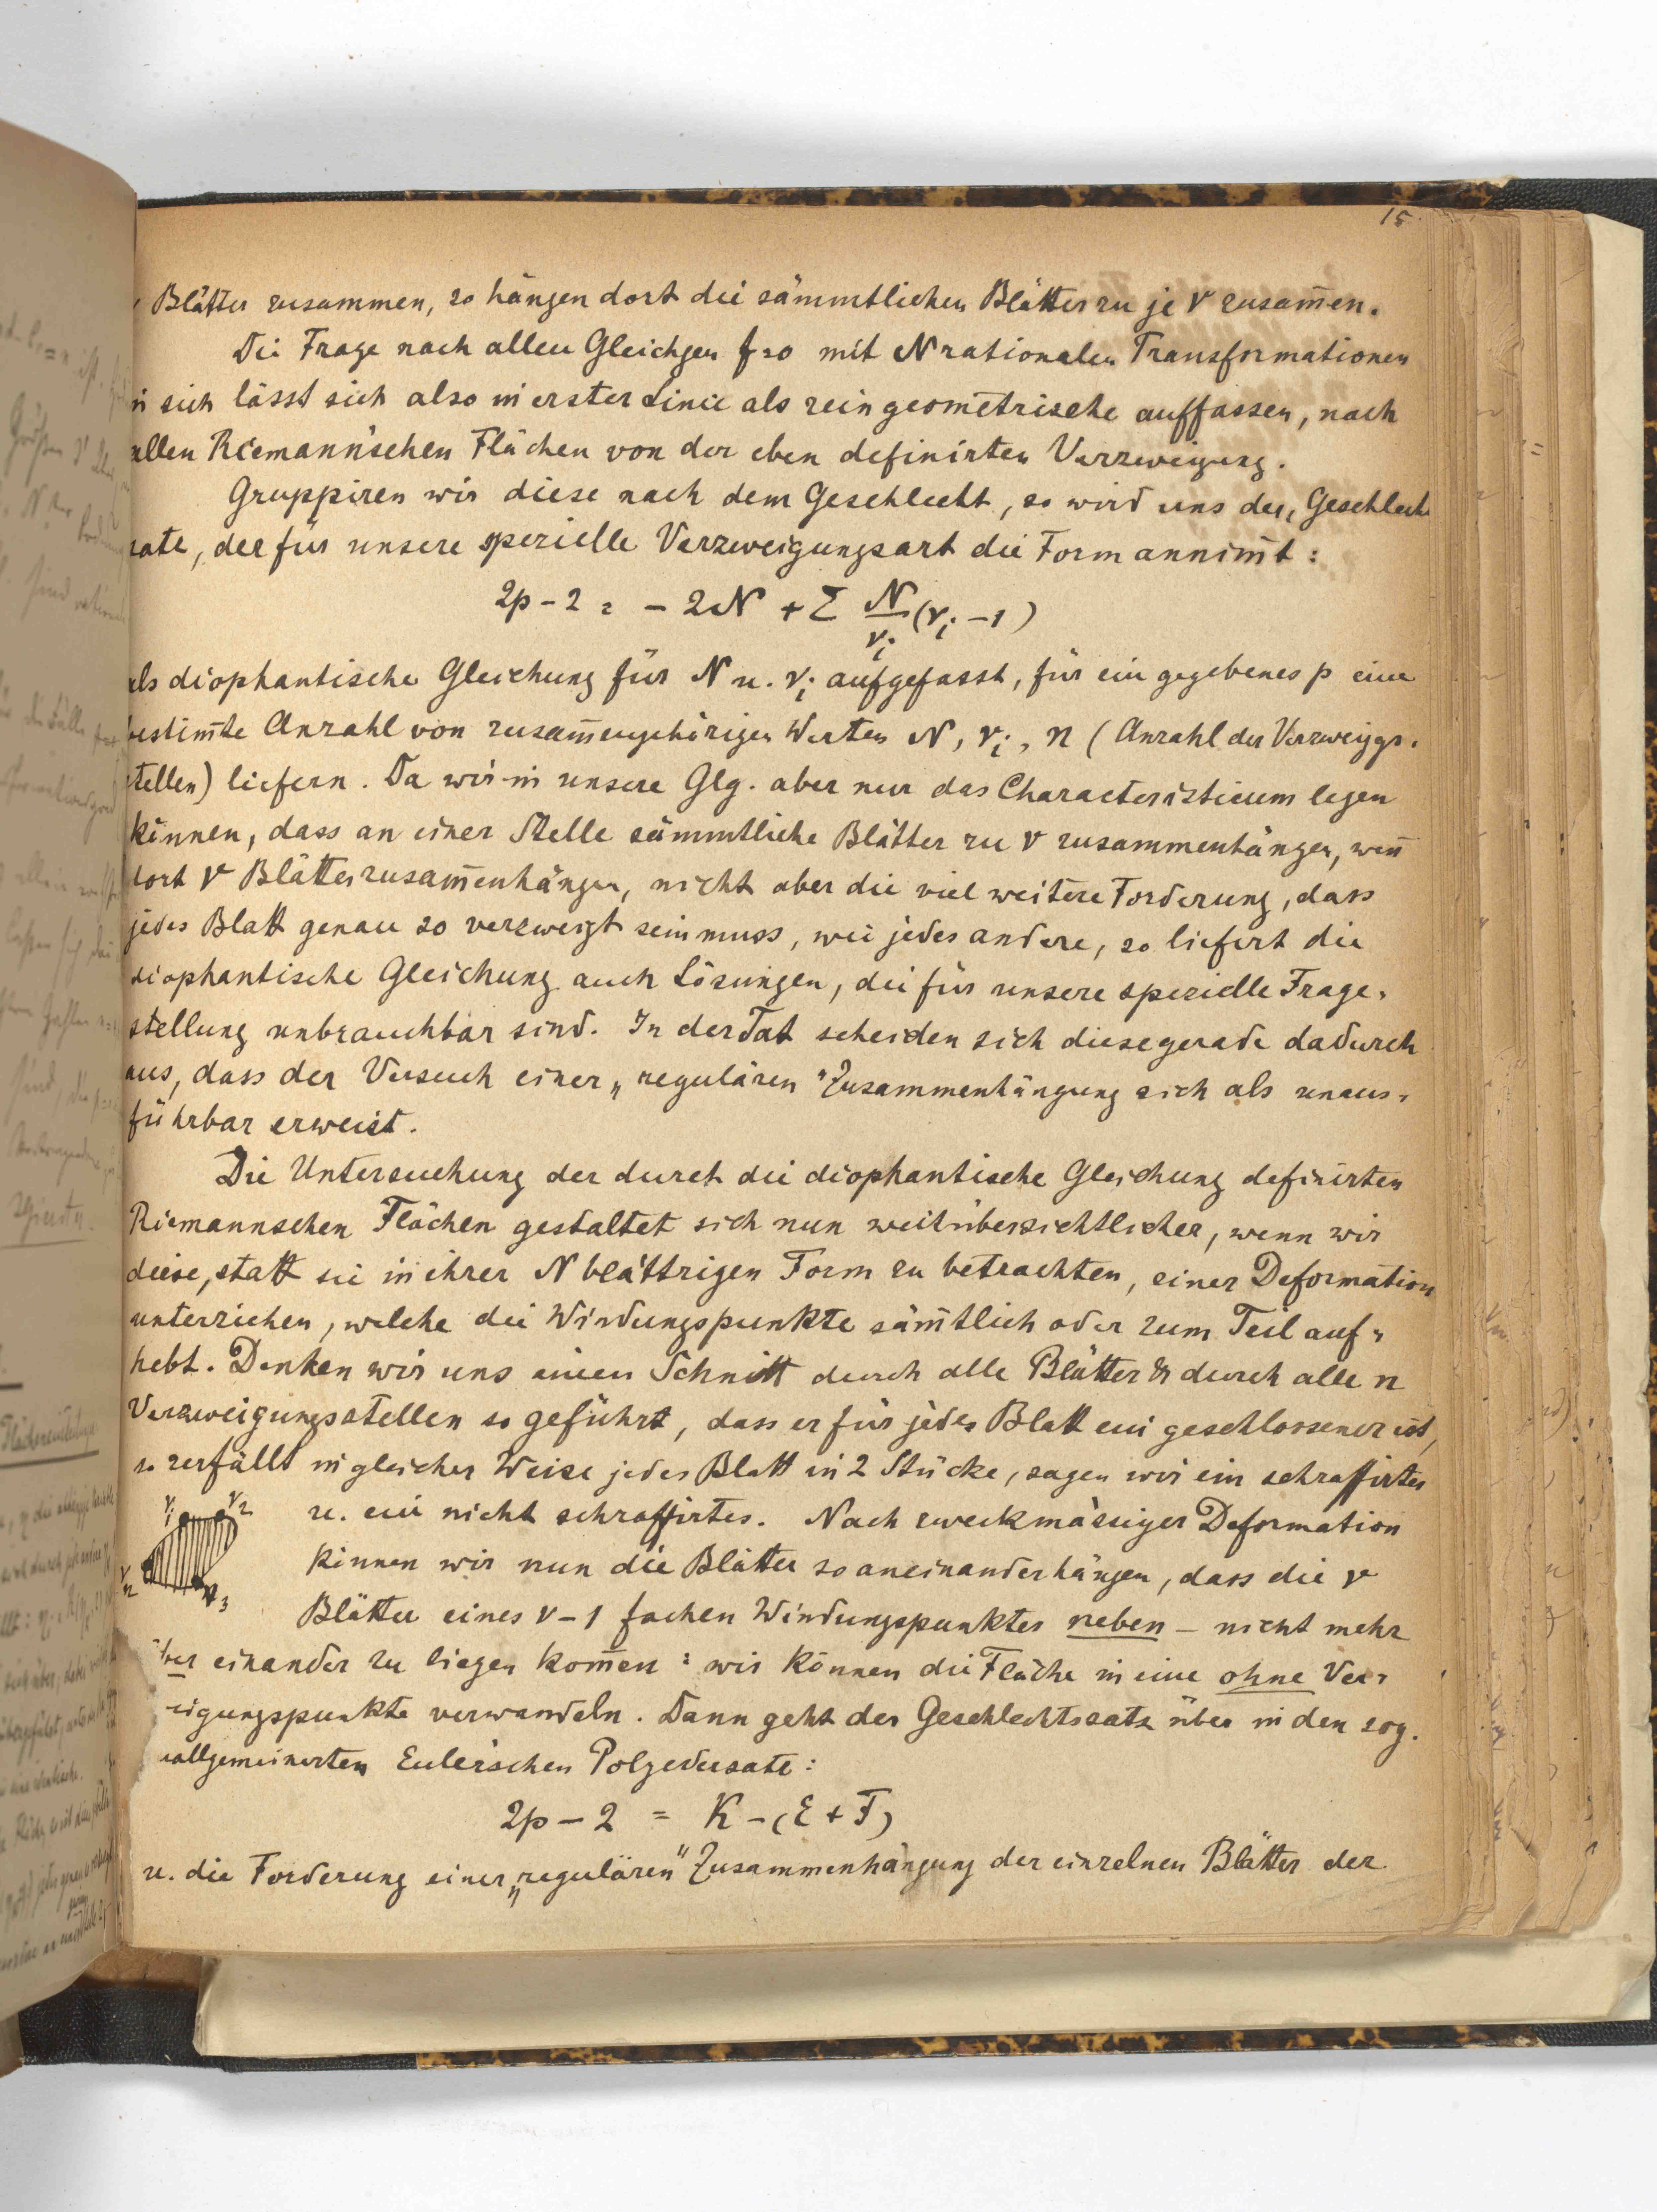 15.
Blätter zusammen, so hängen dort die sämmtlichen Blätter zu je ν zusam̄en.
Die Frage nach allen Gleichgen f=0 mit N rationalen Transformationen
in sich lässt sich also in erster Linie als rein geometrische auffassen, nach
allen Riemann'schen Flächen von der eben definirten Verzweigung.
Gruppiren wir diese nach dem Geschlecht, so wird uns der, Geschlech
satz, der für unsere spezielle Verzweigungsart die Form annim̄t:
2p - 2 = - 2N + Σ N/νᵢ (νᵢ - 1)
als diophantische Gleichung für N u. νᵢ aufgefasst, für ein gegebenes p eine
bestim̄te Anzahl von zusam̄engehörigen Werten N, νᵢ, n (Anzahl der Verzweiggs-
stellen) liefern. Da wir in unsere Glg. aber nur das Characteristicum legen
können, dass an einer Stelle sämmtliche Blätter zu ν zusammenhängen, wen̄
dort ν Blätter zusam̄enhängen, nicht aber die viel weitere Forderung, dass
jedes Blatt genau so verzweigt sein muss, wie jedes andere, so liefert die
diophantische Gleichung auch Lösungen, die für unsere spezielle Frage-
stellung unbrauchbar sind. In der Tat scheiden sich diese gerade dadurch
aus, dass der Versuch einer „regulären" Zusammenhängung sich als unaus-
führbar erweist.
Die Untersuchung der durch die diophantische Gleichung definirten
Riemannschen Flächen gestaltet sich nun weit übersichtlicher, wenn wir
diese, statt sie in ihrer N blättrigen Form zu betrachten, einer Deformation
unterziehen, welche die Windungspunkte säm̄tlich oder zum Teil auf-
hebt. Denken wir uns einen Schnitt durch alle Blätter & durch alle n
Verzweigungsstellen so geführt, dass er für jedes Blatt ein geschlossener ist,
so zerfällt in gleicher Weise jedes Blatt in 2 Stücke, sagen wir ein schraffirtes
ν₁ ν₂ u. ein nicht schraffirtes. Nach zweckmässiger Deformation
können wir nun die Blätter so aneinanderhängen, dass die ν
νₙ ν₃
Blätter eines ν-1 fachen Windungspunktes neben - nicht mehr
über einander zu liegen kom̄en: wir können die Fläche in eine ohne Ver-
eigungspunkte verwandeln. Dann geht der Geschlechtssatz über in den sog.
allgemeinerten Euler'schen Polyedersatz:
2p - 2 = K - (E + F)
u. die Forderung einer „regulären" Zusammenhängung der einzelnen Blätter der